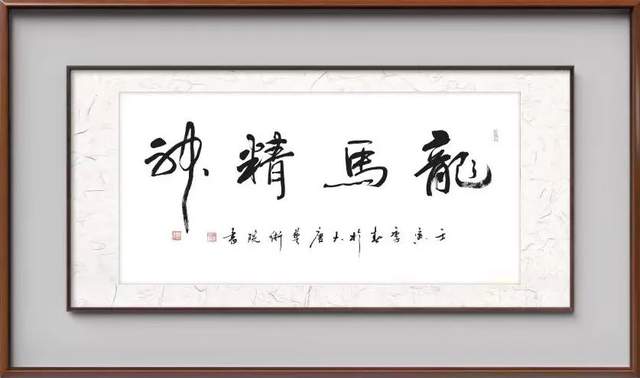 龍馬精神
壬寅季春於大唐藝術院書